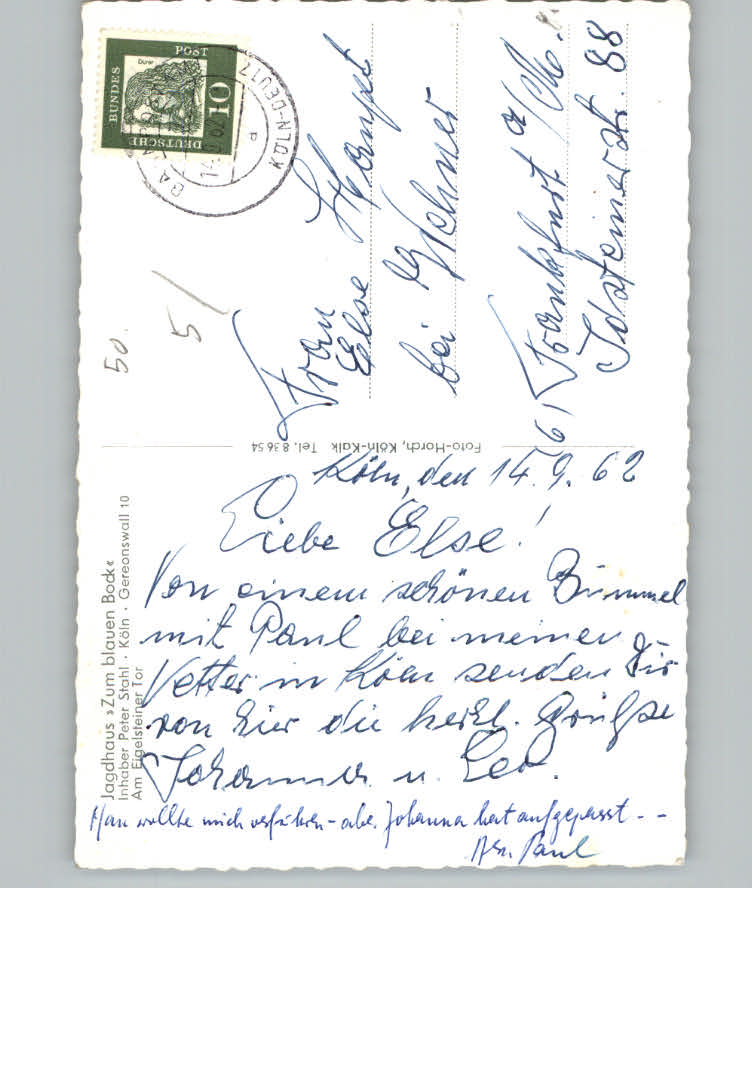 DEUTSCHE
BUNDES
POST
Dürer
10
KÖLN-DEUTZ
a
50.
5/
Frau
Else
bei
6) Frankfurt a/M.
Idsteinerstr. 88
Foto-Horch, Köln-Kalk Tel. 8 36 54
Jagdhaus »Zum blauen Bock«
Inhaber Peter Stahl · Köln · Gereonswall 10
Am Eigelsteiner Tor
Köln, den 14.9.62
Liebe Else!
Von einem schönen Bummel
mit Paul bei meinem
Vetter in Köln senden Dir
von hier die herzl. Grüße
Johanna u. Leo.
Man wollte mich verführen - aber Johanna hat aufgepasst - -
Paul